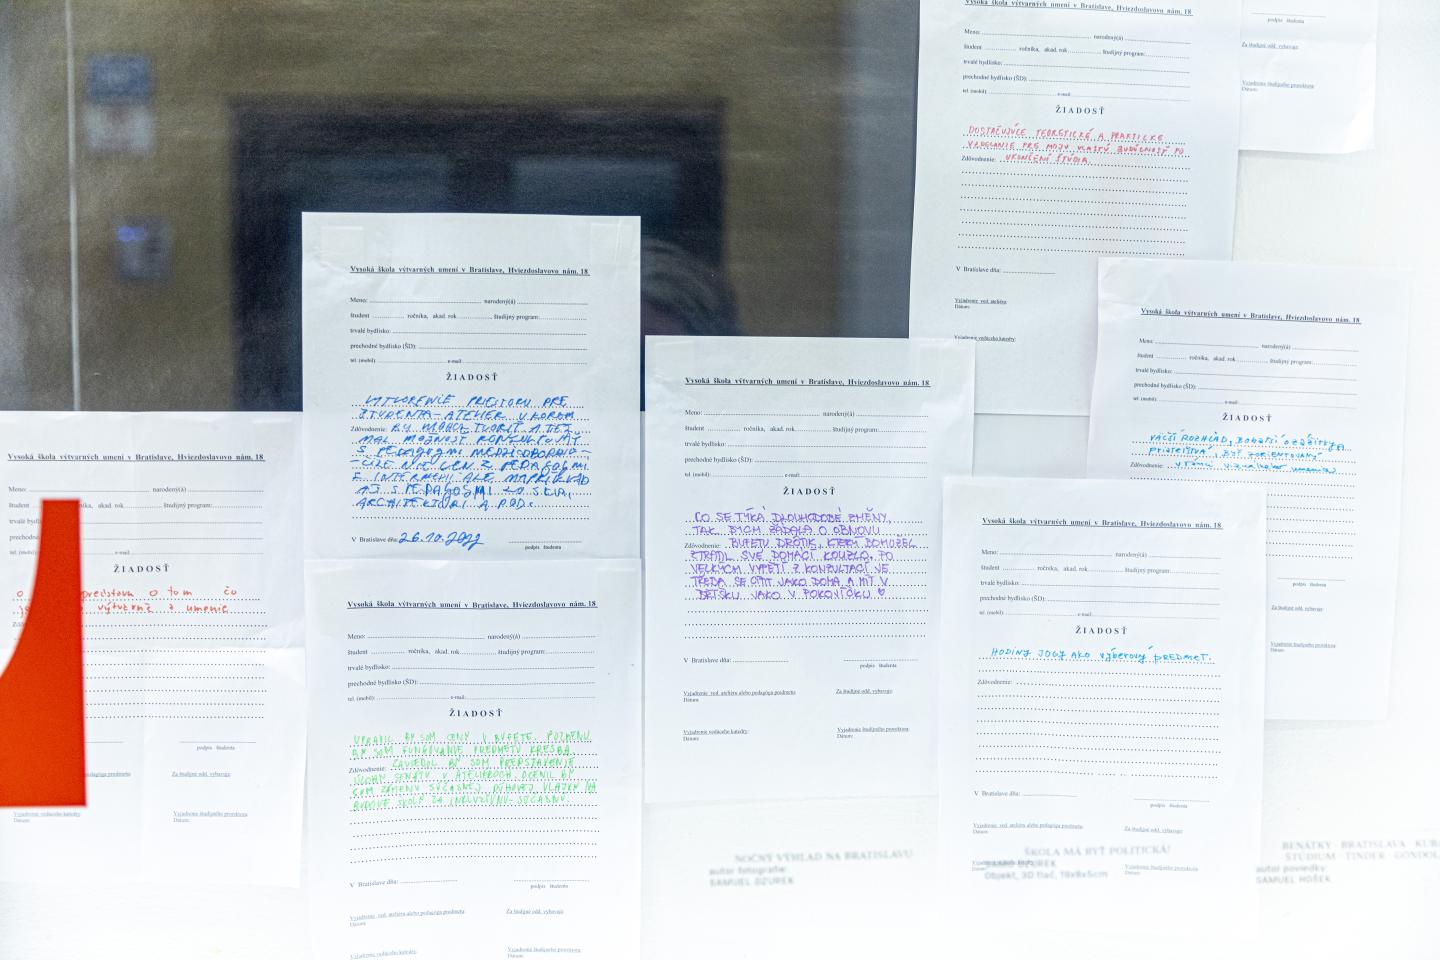 Vysoká škola výtvarných umení v Bratislave, Hviezdoslavovo nám. 18
Meno: narodený(á)
študent ročníka, akad. rok študijný program:
trvalé bydlisko:
prechodné bydlisko (ŠD):
tel. (mobil): e-mail:
ŽIADOSŤ
DOSTAČUJÚCE TEORETICKÉ A PRAKTICKÉ
VZDELANIE PRE MOJU VLASTNÚ BUDÚCNOSŤ PO
Zdôvodnenie: UKONČENÍ ŠTÚDIA.
V Bratislave dňa:
Vyjadrenie ved. ateliéru
Dátum:
Vyjadrenie vedúceho katedry:
podpis študenta
Za študijné odd. vybavuje
Vyjadrenie študijného prorektora
Dátum:
Vysoká škola výtvarných umení v Bratislave, Hviezdoslavovo nám. 18
Meno: narodený(á)
študent ročníka, akad. rok študijný program:
trvalé bydlisko:
prechodné bydlisko (ŠD):
tel. (mobil): e-mail:
ŽIADOSŤ
VYTVORENIE PRIESTORU PRE
ŠTUDENTA-ATELIER V KOROM
Zdôvodnenie: BY MOHOL TVORIŤ A TIEŽ
MAL MOŽNOSŤ KONZULTOVAŤ
S PEDAGOGMI MEDZIODBOROVO -
- ČIŽE NIE LEN Z PEDAGOGMI
Z INTERACII ALE NAPRIKLAD
AJ S PEDAGOGMI SOCH,
ARCHITEKTURI A POD.
V Bratislave dňa: 26.10.2022
podpis študenta
Vysoká škola výtvarných umení v Bratislave, Hviezdoslavovo nám. 18
Meno: narodený(á)
študent ročníka, akad. rok študijný program:
trvalé bydlisko:
prechodné bydlisko (ŠD):
tel. (mobil): e-mail:
ŽIADOSŤ
VÄČŠÍ ROZHĽAD, BOHATŠÍ O ZÁŽITKY A
PRIATEĽSTVÁ, BYŤ ZORIENTOVANÝ
Zdôvodnenie: v rámci vizuálneho umenia
podpis študenta
Za študijné odd. vybavuje
Vyjadrenie študijného prorektora
Dátum:
Vysoká škola výtvarných umení v Bratislave, Hviezdoslavovo nám. 18
Meno: narodený(á)
študent ročníka, akad. rok študijný program:
trvalé bydlisko:
prechodné bydlisko (ŠD):
tel.(mobil) e-mail:
ŽIADOSŤ
ČO SE TÝKÁ DLOUHODOBÉ ZMĚNY,
TAK BYCH ŽÁDALA O OBNOVU
Zdôvodnenie: BUFETU DRÔTIK, KTERÝ BOHUŽEL
ZTRATIL SVÉ DOMÁCÍ KOUZLO. PO
VELKÝCH VYPĚTÍ Z KONZULTACÍ JE
TŘEBA SE CÍTIT JAKO DOMA A MÍT V
BŘÍŠKU JAKO V POKOJÍČKU ♥
V Bratislave dňa:
podpis študenta
Vyjadrenie ved. ateliéru alebo pedagóga predmetu
Dátum:
Za študijné odd. vybavuje
Vyjadrenie vedúceho katedry:
Dátum:
Vyjadrenie študijného prorektora
Dátum:
Vysoká škola výtvarných umení v Bratislave, Hviezdoslavovo nám. 18
Meno: narodený(á)
študent ročníka, akad. rok študijný program:
ŽIADOSŤ
predstava o tom čo
výtvarné a umenie
podpis študenta
pedagóga predmetu
Za študijné odd. vybavuje
Vyjadrenie vedúceho katedry
Dátum:
Vyjadrenie študijného prorektora
Dátum:
Vysoká škola výtvarných umení v Bratislave, Hviezdoslavovo nám. 18
Meno: narodený(á)
študent ročníka, akad. rok študijný program:
trvalé bydlisko:
prechodné bydlisko (ŠD):
tel.(mobil) e-mail:
ŽIADOSŤ
HODINY JOGY AKO výberový PREDMET.
Zdôvodnenie:
V Bratislave dňa:
podpis študenta
Vyjadrenie ved. ateliéru alebo pedagóga predmetu
Dátum:
Za študijné odd. vybavuje
Vyjadrenie študijného prorektora
Dátum:
Vysoká škola výtvarných umení v Bratislave, Hviezdoslavovo nám. 18
Meno: narodený(á)
študent ročníka, akad. rok študijný program:
trvalé bydlisko:
prechodné bydlisko (ŠD):
tel. (mobil): e-mail:
ŽIADOSŤ
UPRAVIL BY SOM CENY V BUFETE. POZMENIL
BY SOM FUNGOVANIE PREDMETU KRESBA.
Zdôvodnenie: ZAVIEDOL BY SOM PREDSTAVENIE
ÚLOHY SENÁTU V ATELIÉROCH. OCENIL BY
SOM ZÁMENU SÚČASNEJ DÚHOVEJ VLAJKY NA
BUDOVE ŠKOLY ZA INKLUZÍVNU-SÚČASNÚ.
V Bratislave dňa:
podpis študenta
Vyjadrenie ved. ateliéru alebo pedagóga predmetu
Dátum:
Za študijné odd. vybavuje
Vyjadrenie vedúceho katedry:
Dátum:
Vyjadrenie študijného prorektora
Dátum:
NOČNÝ VÝHĽAD NA BRATISLAVU
autor fotografie:
SAMUEL DZUREK
ŠKOLA MÁ BYŤ POLITICKÁ!
DZUREK
Objekt, 3D tlač, 19x8x5cm
BENÁTKY - BRATISLAVA - KUBA
ŠTÚDIUM - TINDER - GONDOL
autor poviedky:
SAMUEL HOŠEK